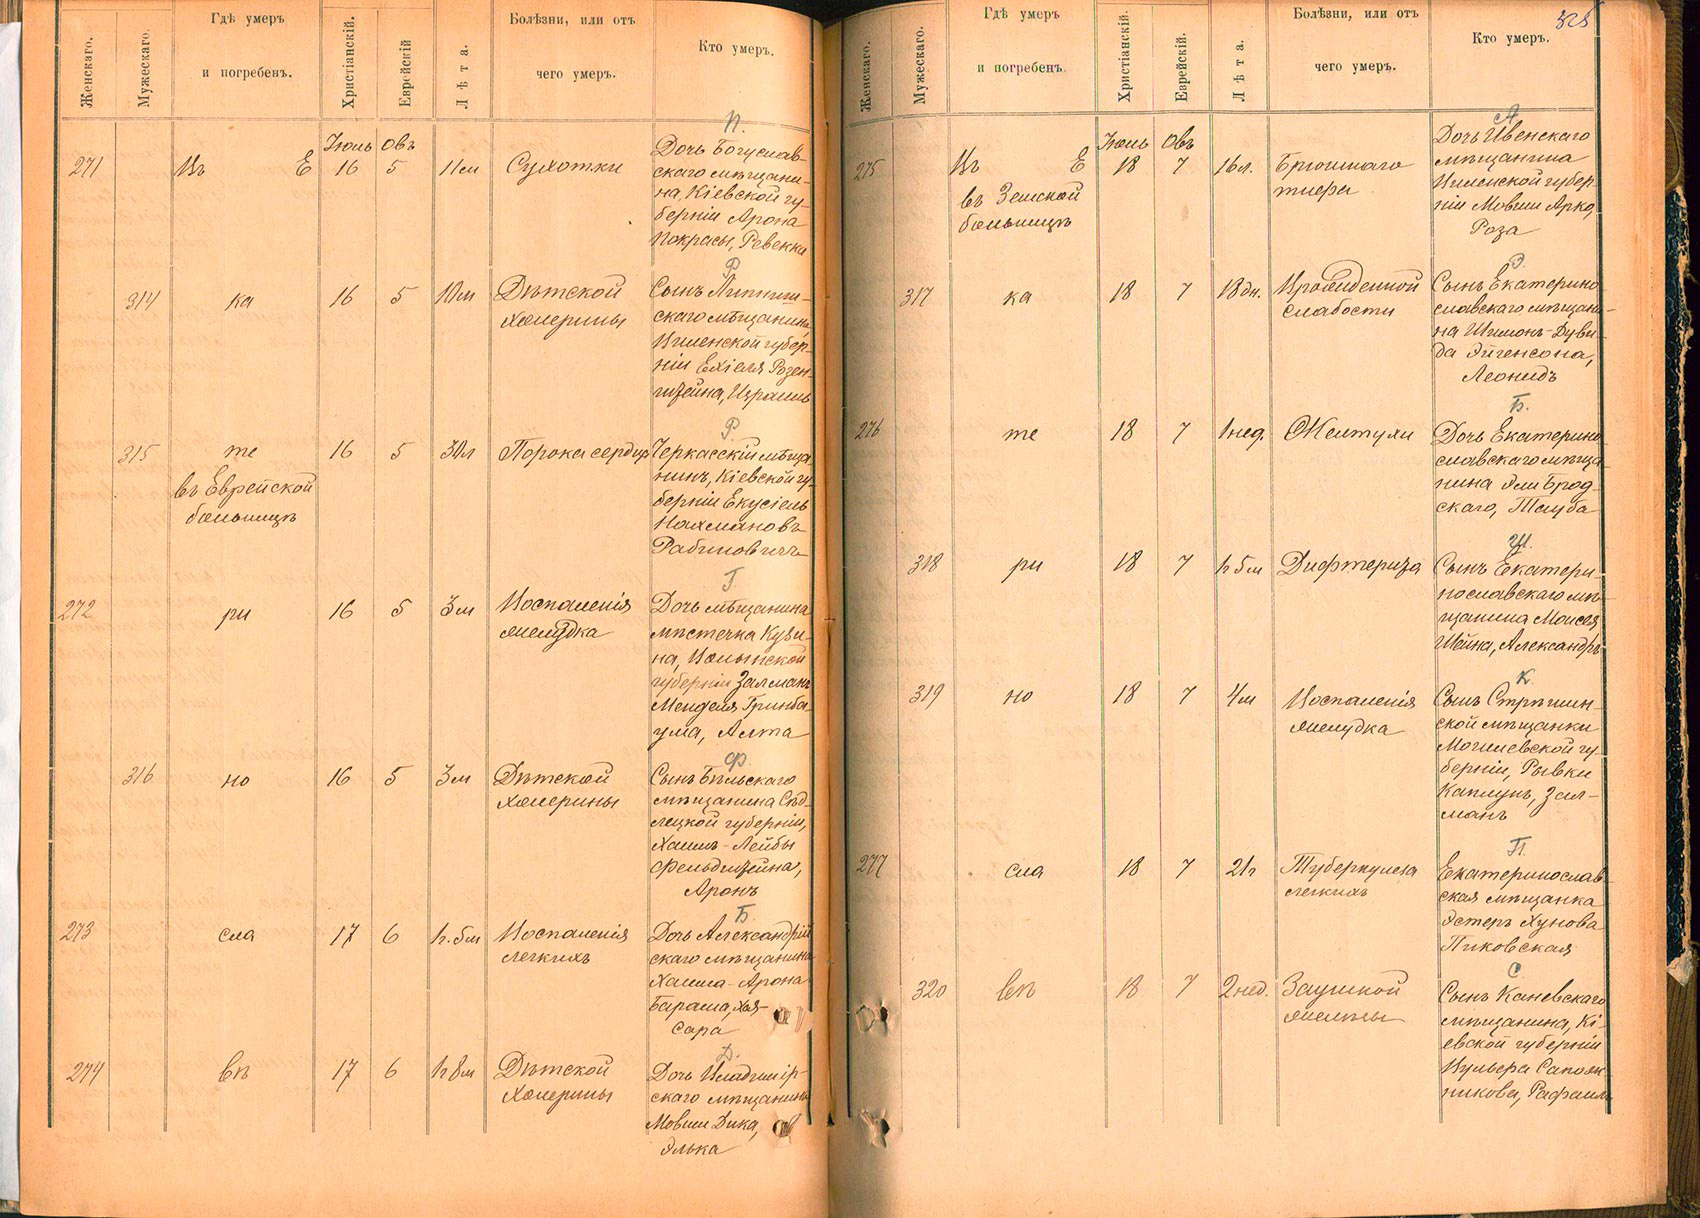 Женскаго.
Мужескаго.
Гдѣ умеръ
и погребенъ.
Христіанскій.
Еврейскій
Лѣта.
Болѣзни, или отъ
чего умеръ.
Кто умеръ.
П.
Іюль Овъ
271 Въ Е 16 5 11м Сухотки
Дочь Богуслав-
скаго мѣщани-
на, Кіевской гу-
берніи Арона
Покрасы, Ревекка
Р.
314 ка 16 5 10м Дѣтской
холерины
Сынъ
скаго мѣщанина,
Виленской губер-
ніи Ехіеля Розен-
штейна, Израиль
Р.
315 те 30л Порока сердца
16 5
въ Еврейской
больницѣ
Черкасскій мѣща-
нинъ, Кіевской гу-
берніи Екусіель
Нахмановъ
Рабиновичъ
Г.
272 ри 16 5 3м Воспаленія
желудка
Дочь мѣщанина
мѣстечка
на, Волынской
губерніи Залмана
Менделя Гринба-
ума, Алта
Ф.
316 но 16 5 3м Дѣтской
холерины
Сынъ Бѣльскаго
мѣщанина Сѣд-
лецкой губерніи,
Хаимъ-Лейбы
Фельдштейна,
Аронъ
Б.
273 сла 17 6 1г. 5м Воспаленія
легкихъ
Дочь Александрій
скаго мѣщанина
Хаима-Арона
Бараша, Хая-
Сара
Д.
274 вѣ 17 6 1г 8м Дѣтской
холерины
Дочь Владимір-
скаго мѣщанина
Мовши Дика,
Элька
325
Женскаго.
Мужескаго.
Гдѣ умеръ
и погребенъ.
Христіанскій.
Еврейскій.
Лѣта.
Болѣзни, или отъ
чего умеръ.
Кто умеръ.
А.
Іюль Овъ
275 Въ Е 18 7 16л. Брюшнаго
тифа
въ Земской
больницѣ
Дочь Ивенскаго
мѣщанина
Виленской губер-
ніи Мовши Арко,
Роза
Э.
317 ка 18 7 18дн. Врожденной
слабости
Сынъ Екатерино
славскаго мѣщани-
на Шимонъ-Дуви-
да Эйгенсона,
Леонидъ
Б.
276 те 18 7 1нед. Желтухи
Дочь Екатерино
славскаго мѣща
нина Эли Брод-
скаго, Тауба
Ш.
318 ри 18 7 1г 5м Дифтерита
Сынъ Екатери-
нославскаго мѣ-
щанина Моисея
Шейна, Александръ
К.
319 но 18 7 4м Воспаленія
желудка
Сынъ Стрѣшин-
ской мѣщанки
Могилевской гу-
берніи, Рывки
Каплунъ, Зал-
манъ
П.
277 сла 18 7 21г Туберкулеза
легкихъ
Екатеринослав-
ская мѣщанка
Эстеръ Хунова
Пиковская
С.
320 вѣ 18 7 2нед. Заушной
железы
Сынъ Каневскаго
мѣщанина, Кі-
евской губерніи
Вульфа Сапож-
никова, Рафаилъ